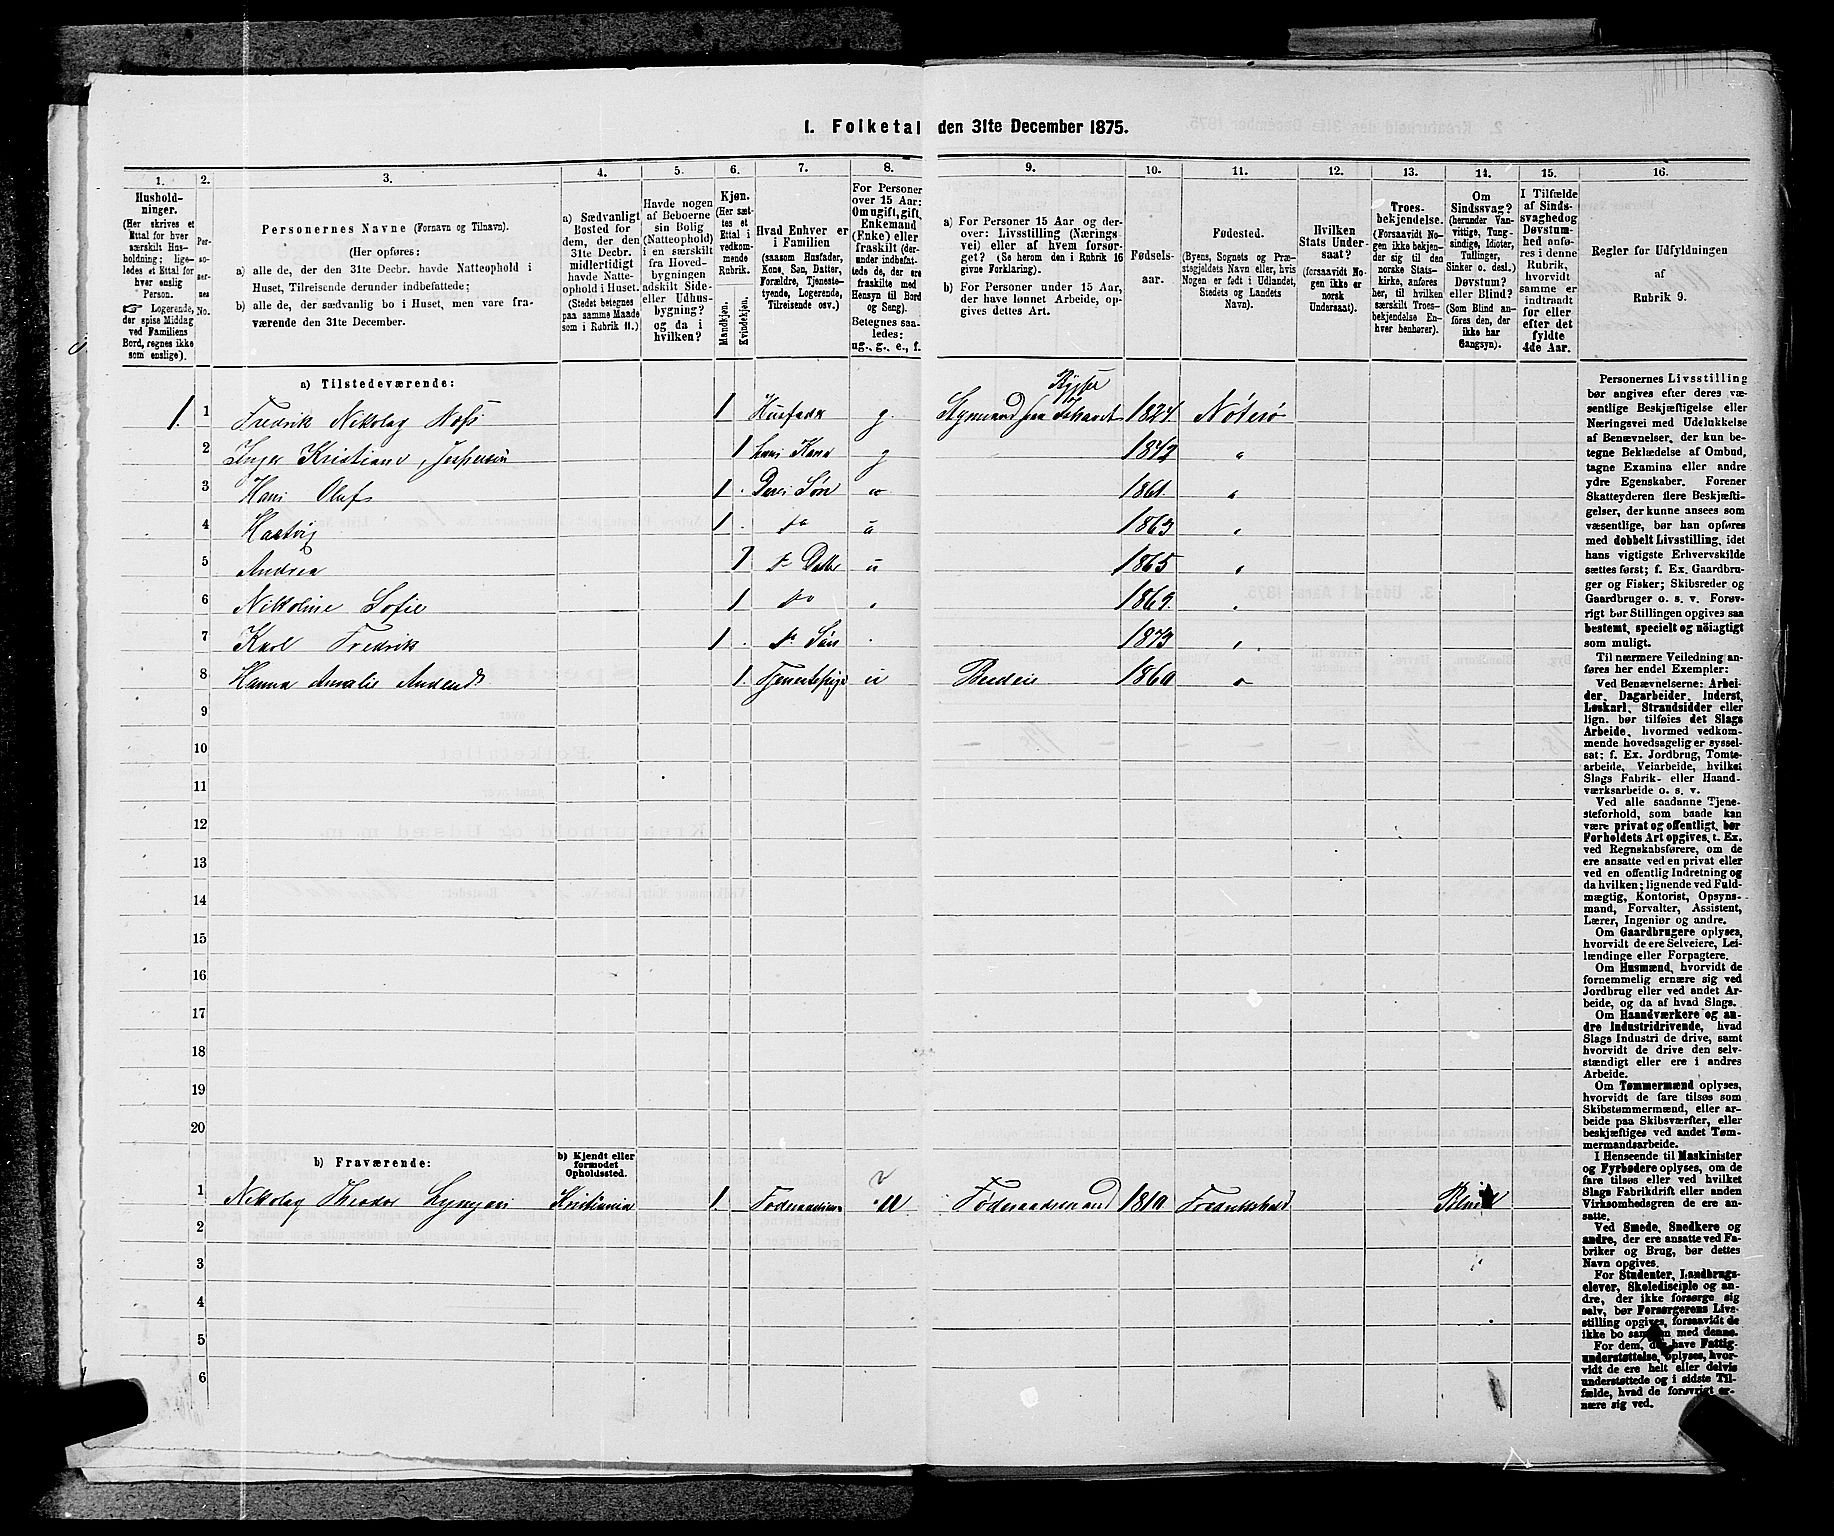 1. Folketal den 31te December 1875.
1. 2. 3. 4. 5. 6. 7. 8. 9. 10. 11. 12. 13. 14. 15. 16.
Hushold-
ninger.
(Her skrives et
Ettal for hver
særskilt Hus-
holdning; lige-
ledes et Ettal for
hver enslig
Person.
☞ Logerende,
der spise Middag
ved Familiens
Bord, regnes ikke
som enslige).
Per-
so-
ner-
nes
No.
Personernes Navne (Fornavn og Tilnavn).
(Her opføres:
a) alle de, der den 31te Decbr. havde Natteophold i
Huset, Tilreisende derunder indbefattede;
b) alle de, der sædvanlig bo i Huset, men vare fra-
værende den 31te December.
a) Sædvanligt
Bosted for
dem, der den
31te Decbr.
midlertidigt
havde Natte-
ophold i Huset.
(Stedet betegnes
paa samme Maade
som i Rubrik 11.)
Havde nogen
af Beboerne
sin Bolig
(Natteophold)
i en særskilt
fra Hoved-
bygningen
adskilt Side-
eller Udhus-
bygning?
og da i
hvilken?
Kjøn.
(Her sæt-
tes et
Ettal i
vedkom-
mende
Rubrik.
Mandkjøn.
Kvindekjøn.
Hvad Enhver er
i Familien
(saasom Husfader,
Kone, Søn, Datter,
Forældre, Tjeneste-
tyende, Logerende,
Tilreisende osv.)
For Personer
over 15 Aar:
Om ugift, gift,
Enkemand
(Enke) eller
fraskilt (der-
under indbefat-
tede de, der ere
fraskilte med
Hensyn til Bord
og Seng).
Betegnes saa-
ledes:
ug., g., e., f.
a) For Personer 15 Aar og der-
over: Livsstilling (Nærings
vei) eller af hvem forsør-
get? (Se herom den i Rubrik 16
givne Forklaring).
b) For Personer under 15 Aar,
der have lønnet Arbeide, op-
gives dettes Art.
Fødsels-
aar.
Fødested.
(Byens, Sognets og Præ-
stegjeldets Navn eller, hvis
Nogen er født i Udlandet,
Stedets og Landets
Navn).
Hvilken
Stats Under-
saat?
(forsaavidt No-
gen ikke er
norsk
Undersaat).
Troes-
bekjendelse.
(Forsaavidt No-
gen ikke bekjen-
der sig til den
norske Stats-
kirke, anføres
her, til hvilken
særskilt Troes-
bekjendelse En-
hver henhører).
Om
Sindssvag?
(herunder Van-
vittige, Tung-
sindige, Idioter,
Tullinger,
Sinker o. desl.)
Døvstum?
eller Blind?
(Som Blind an-
føres den, der
ikke har
Gangsyn).
I Tilfælde
af Sinds-
svaghedog
Døvstum-
hed anfø-
res i denne
Rubrik,
hvorvidt
samme er
indtraadt
før eller
efter det
fyldte
4de Aar.
Regler før Udfyldningen
af
Rubrik 9.
a) Tilstedeværende:
1. 1 Fredrik Nikolay Røfs 1 Husfader g 1824. Nøterø
2 Inger Kristiane Jespersen 1 hans Kone g 1842 "
3 Hans Oluf 1 Deres Søn 1861. "
4 Hartvig 1 do u 1863 "
5 Andrea 1 do Datter u 1865 "
6 Nikoline Sofie 1 do 1869. "
7 Karl Fredrik 1 do Søn 1873 "
8 Hanna Amalie 1. Tjenestepige u 1860 "
9
10
11
12
13
14
15
16
17
18
19
20
b) Fraværende:
b) Kjendt eller
formodet
Opholdssted.
1 Nikolay Theodor Kristiania 1 Føderaadsmand 1810 Fredrikshald Blind
2
3
4
5
6
Personernes Livsstilling
bør angives efter deres væ-
sentlige Beskjæftigelse eller
Næringsvei med Udelukkelse
af Benævnelser, der kun be-
tegne Beklædelse af Ombud,
tagne Examina eller andre
ydre Egenskaber. Forener
Skatteyderen flere Beskjæfti-
gelser, der kunne ansees som
væsentlige, bør han opføres
med dobbelt Livsstilling, idet
hans vigtigste Erhvervskilde
sættes først; f. Ex. Gaardbru-
ger og Fisker; Skibsreder og
Gaardbruger o. s. v. Forøv-
rigt bør Stillingen opgives saa
bestemt, specielt og nöiagtigt
som muligt.
Til nærmere Veiledning an-
føres her endel Exempler:
Ved Benævnelserne: Arbei-
der, Dagarbeider, Inderst,
Løskarl, Strandsidder eller
lign. bør tilføies det Slags
Arbeide, hvormed vedkom-
mende hovedsagelig er syssel-
sat; f. Ex. Jordbrug, Tomte-
arbeide, Veiarbeide, hvilket
Slags Fabrik- eller Haand-
værksarbeide o. s. v.
Ved alle saadanne Tjene-
steforhold, som baade kan
være privat og offentligt, bør
Forholdets Art opgives, t. Ex.
ved Regnskabsførere, om de
ere ansatte ved en privat eller
ved en offentlig Indretning og
da hvilken; lignende ved Fuld-
mægtig, Kontorist, Opsyns-
mand, Forvalter, Assistent,
Lærer, Ingeniør og andre.
Om Gaardbrugere oplyses,
hvorvidt de ere Selveiere, Lei-
lændinge eller Forpagtere.
Om Husmænd, hvorvidt de
fornemmelig ernære sig ved
Jordbrug eller ved andet Ar-
beide, og da af hvad Slags.
Om Haandværkere og an-
dre Industridrivende, hvad
Slags Industri de drive, samt
hvorvidt de drive den selv-
stændigt eller ere i andres
Arbeide.
Om Tømmermænd oplyses,
hvorvidt de fare tilsøs som
Skibstømmermænd, eller ar-
beide paa Skibsværfter, eller
beskjæftiges ved andet Tøm-
mermandsarbeide.
I Henseende til Maskinister
og Fyrbødere oplyses, om de
fare tilsøs eller ved hvilket
Slags Fabrikdrift eller anden
Virksomhedsgren de ere an-
satte.
Ved Smede, Snedkere og
andre, der ere ansatte ved Fa-
briker og Brug, bør dettes
Navn opgives.
For Studenter, Landbrugs-
elever, Skoledisciple og an-
dre, der ikke forsørge sig
selv, bør Forsørgerens Livs-
stilling opgives, forsaavidt de
ikke bo sammen med denne.
For dem, der have Fattig-
understøttelse, oplyses, hvor-
vidt de ere helt eller delvis
understøttede og i sidste Til-
fælde, hvad de forøvrigt er-
nære sig ved.